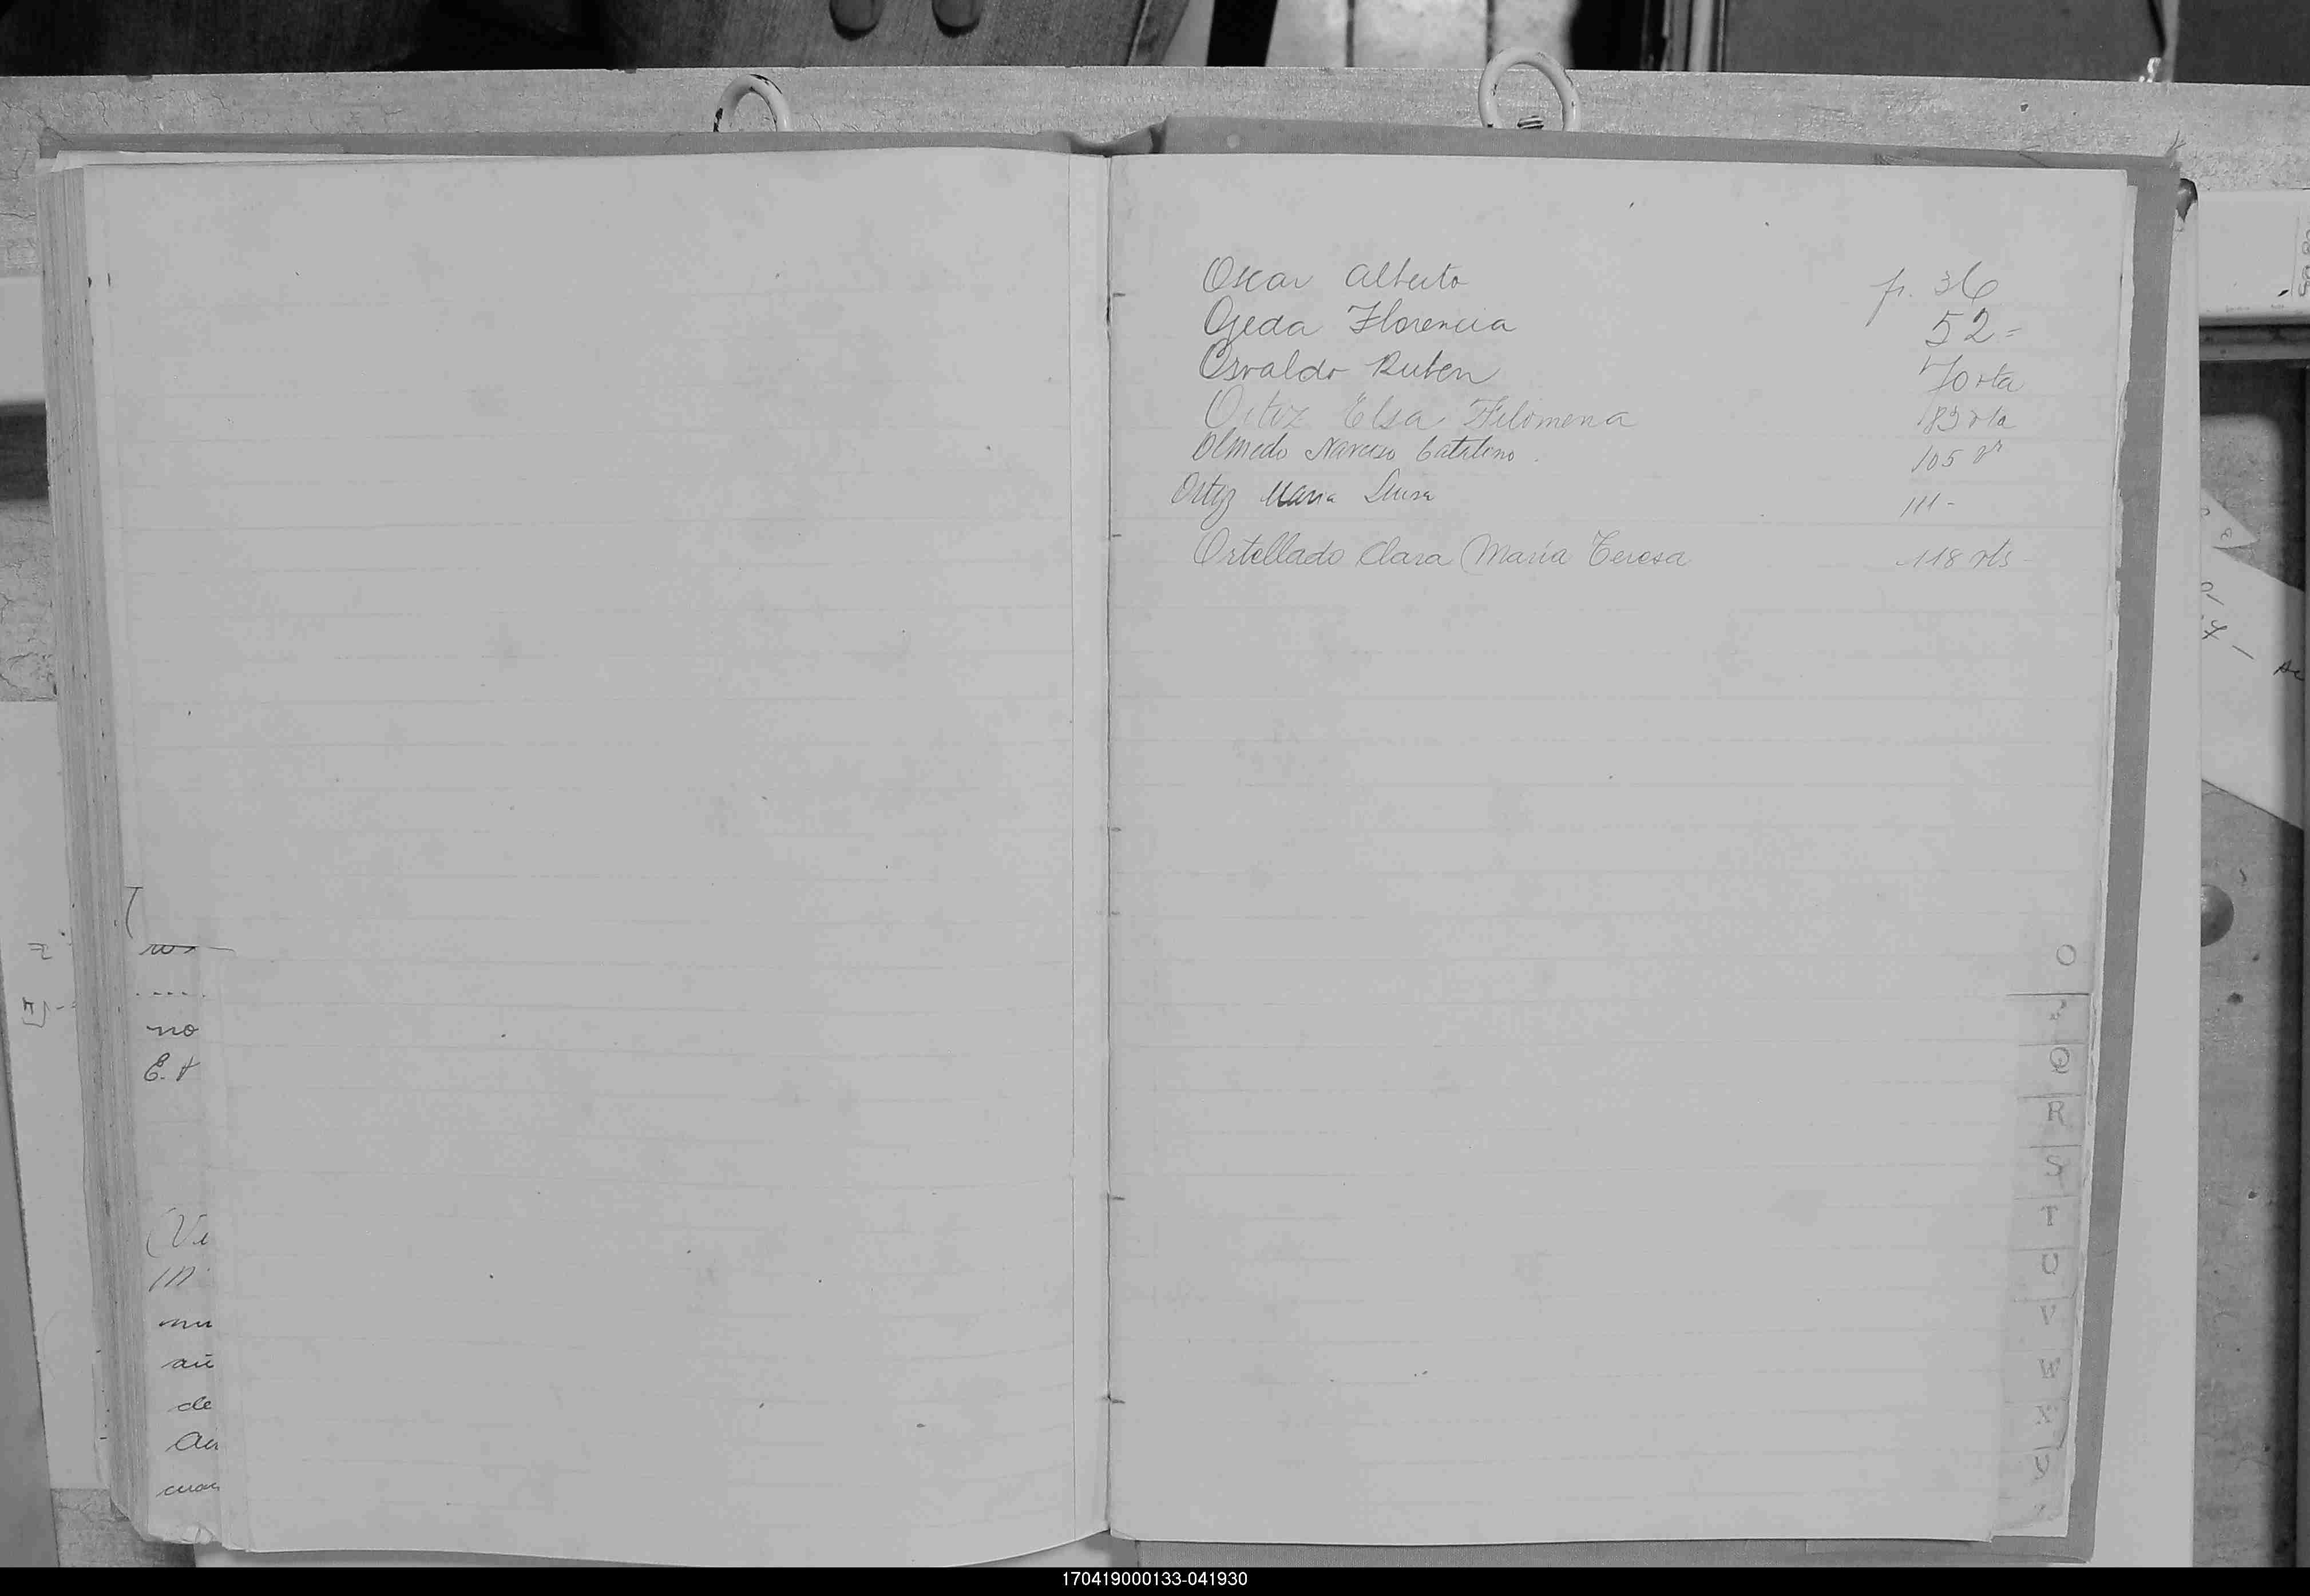 ros
no
E. t
(Ve
m
mu
au
de
au
cuar
Oscar Alberto p. 36
Ojeda Florencia 52-
Osvaldo Ruben 70 vta
Ortiz Elsa Filomena 83 vta
Olmedo Narciso Catalino. 105 vt
Ortiz Maria Luisa 111-
Ortellado Clara María Teresa 118 vts
O
Q
R
S
T
U
V
W
X
Y
170419000133-041930